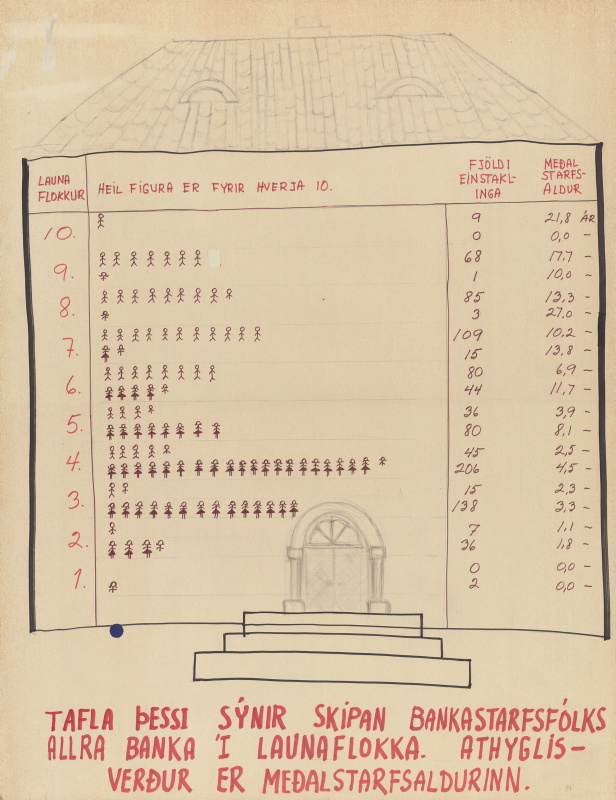 LAUNA
FLOKKUR
HEIL FIGURA ER FYRIR HVERJA 10.
FJÖLDI
EINSTAKL-
INGA
MEÐAL
STARFS-
ALDUR
10.
9 21,8 ÁR
0 0,0 -
9.
68 17,7 -
1 10,0 -
8.
85 13,3 -
3 27,0 -
7.
109 10,2 -
15 13,8 -
6.
80 6,9 -
44 11,7 -
5.
36 3,9 -
80 8,1 -
4.
45 2,5 -
206 4,5 -
3.
15 2,3 -
138 3,3 -
2.
7 1,1 -
36 1,8 -
1.
0 0,0 -
2 0,0 -
TAFLA ÞESSI SÝNIR SKIPAN BANKASTARFSFÓLKS
ALLRA BANKA Í LAUNAFLOKKA. ATHYGLIS-
VERÐUR ER MEÐALSTARFSALDURINN.